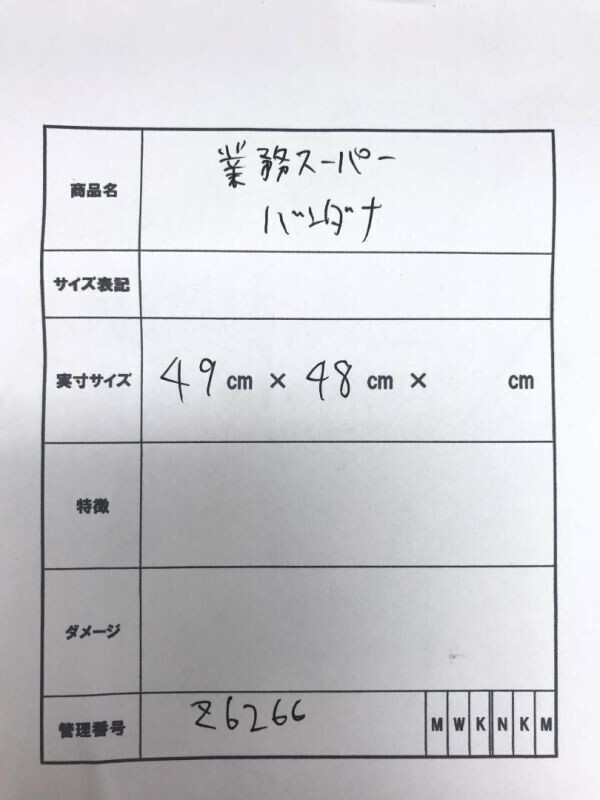 商品名 業務スーパー
バンダナ
サイズ表記
実寸サイズ 49 cm × 48 cm × cm
特徴
ダメージ
管理番号 Z6266 M W K N K M